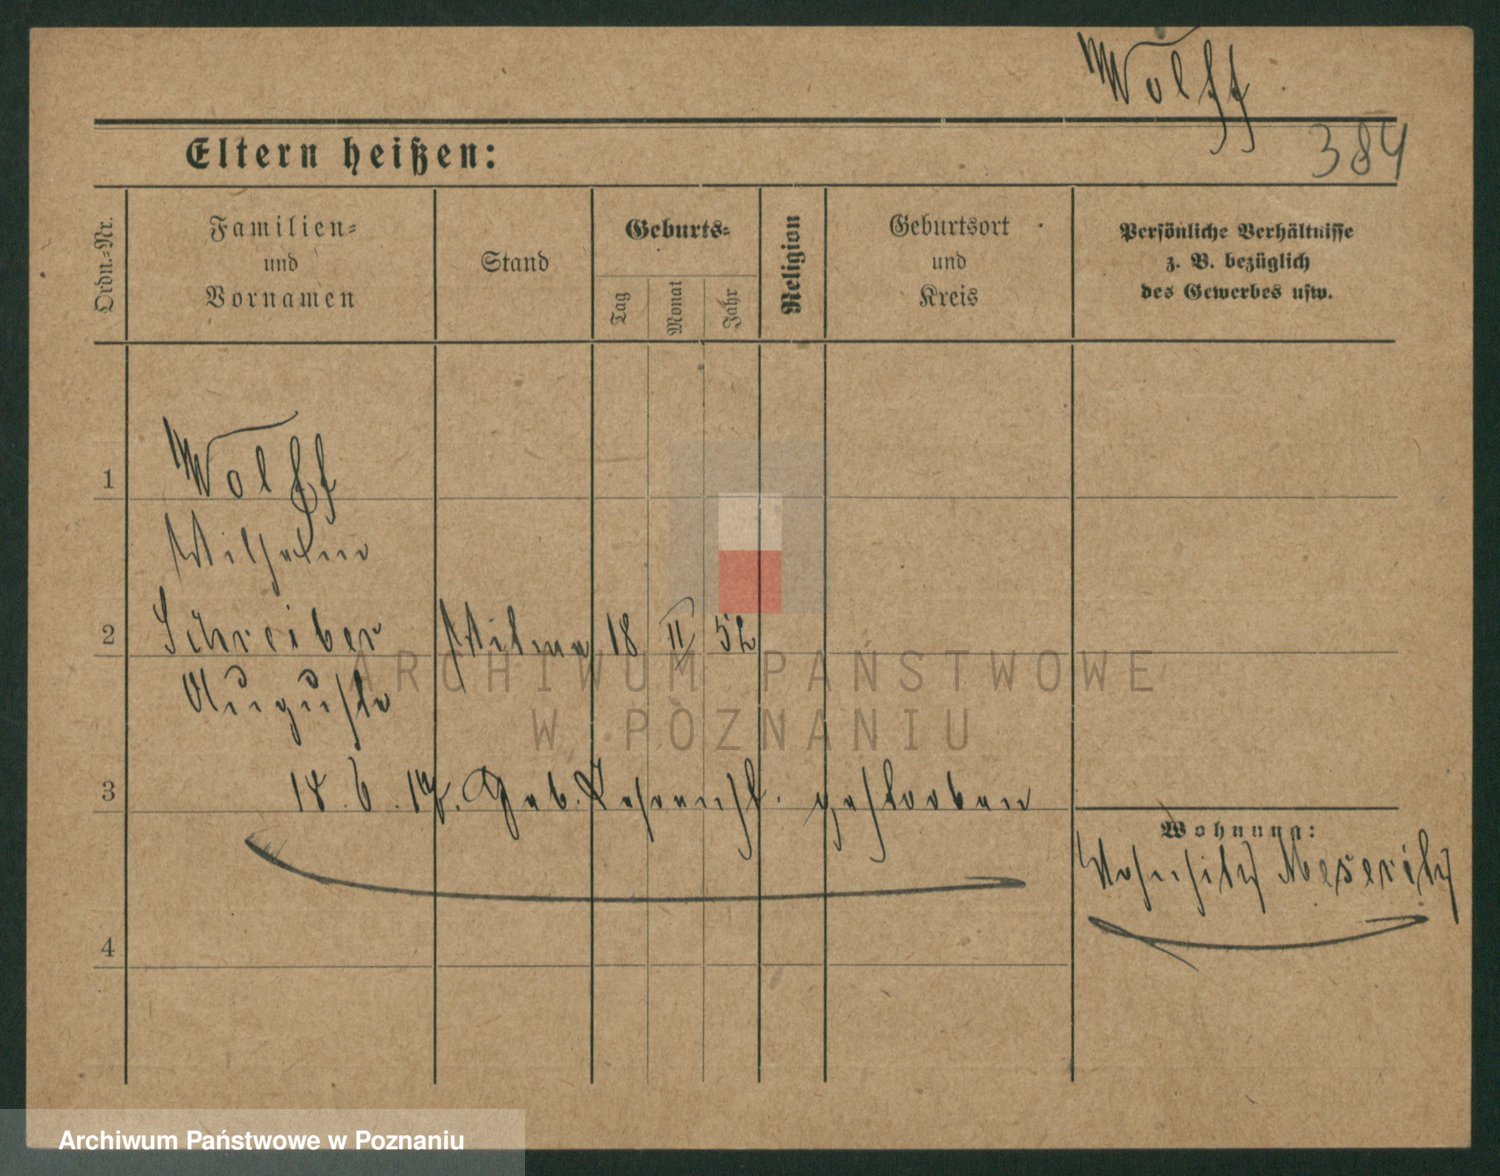 Wolff
384
Eltern heißen:
Ordn.=Nr.
Familien=
und
Vornamen
Stand
Geburts=
Tag
Monat
Jahr
Religion
Geburtsort
und
Kreis
Persönliche Verhältnisse
z. B. bezüglich
des Gewerbes usw.
1
Wolff
Wilhelm
2
Schreiber Witwe 18 II 52
Auguste
3
18. 6. 17. Geb. gestorben
Wohnung:
Wohnsitz Meseritz
4
ARCHIWUM PAŃSTWOWE
W POZNANIU
Archiwum Państwowe w Poznaniu